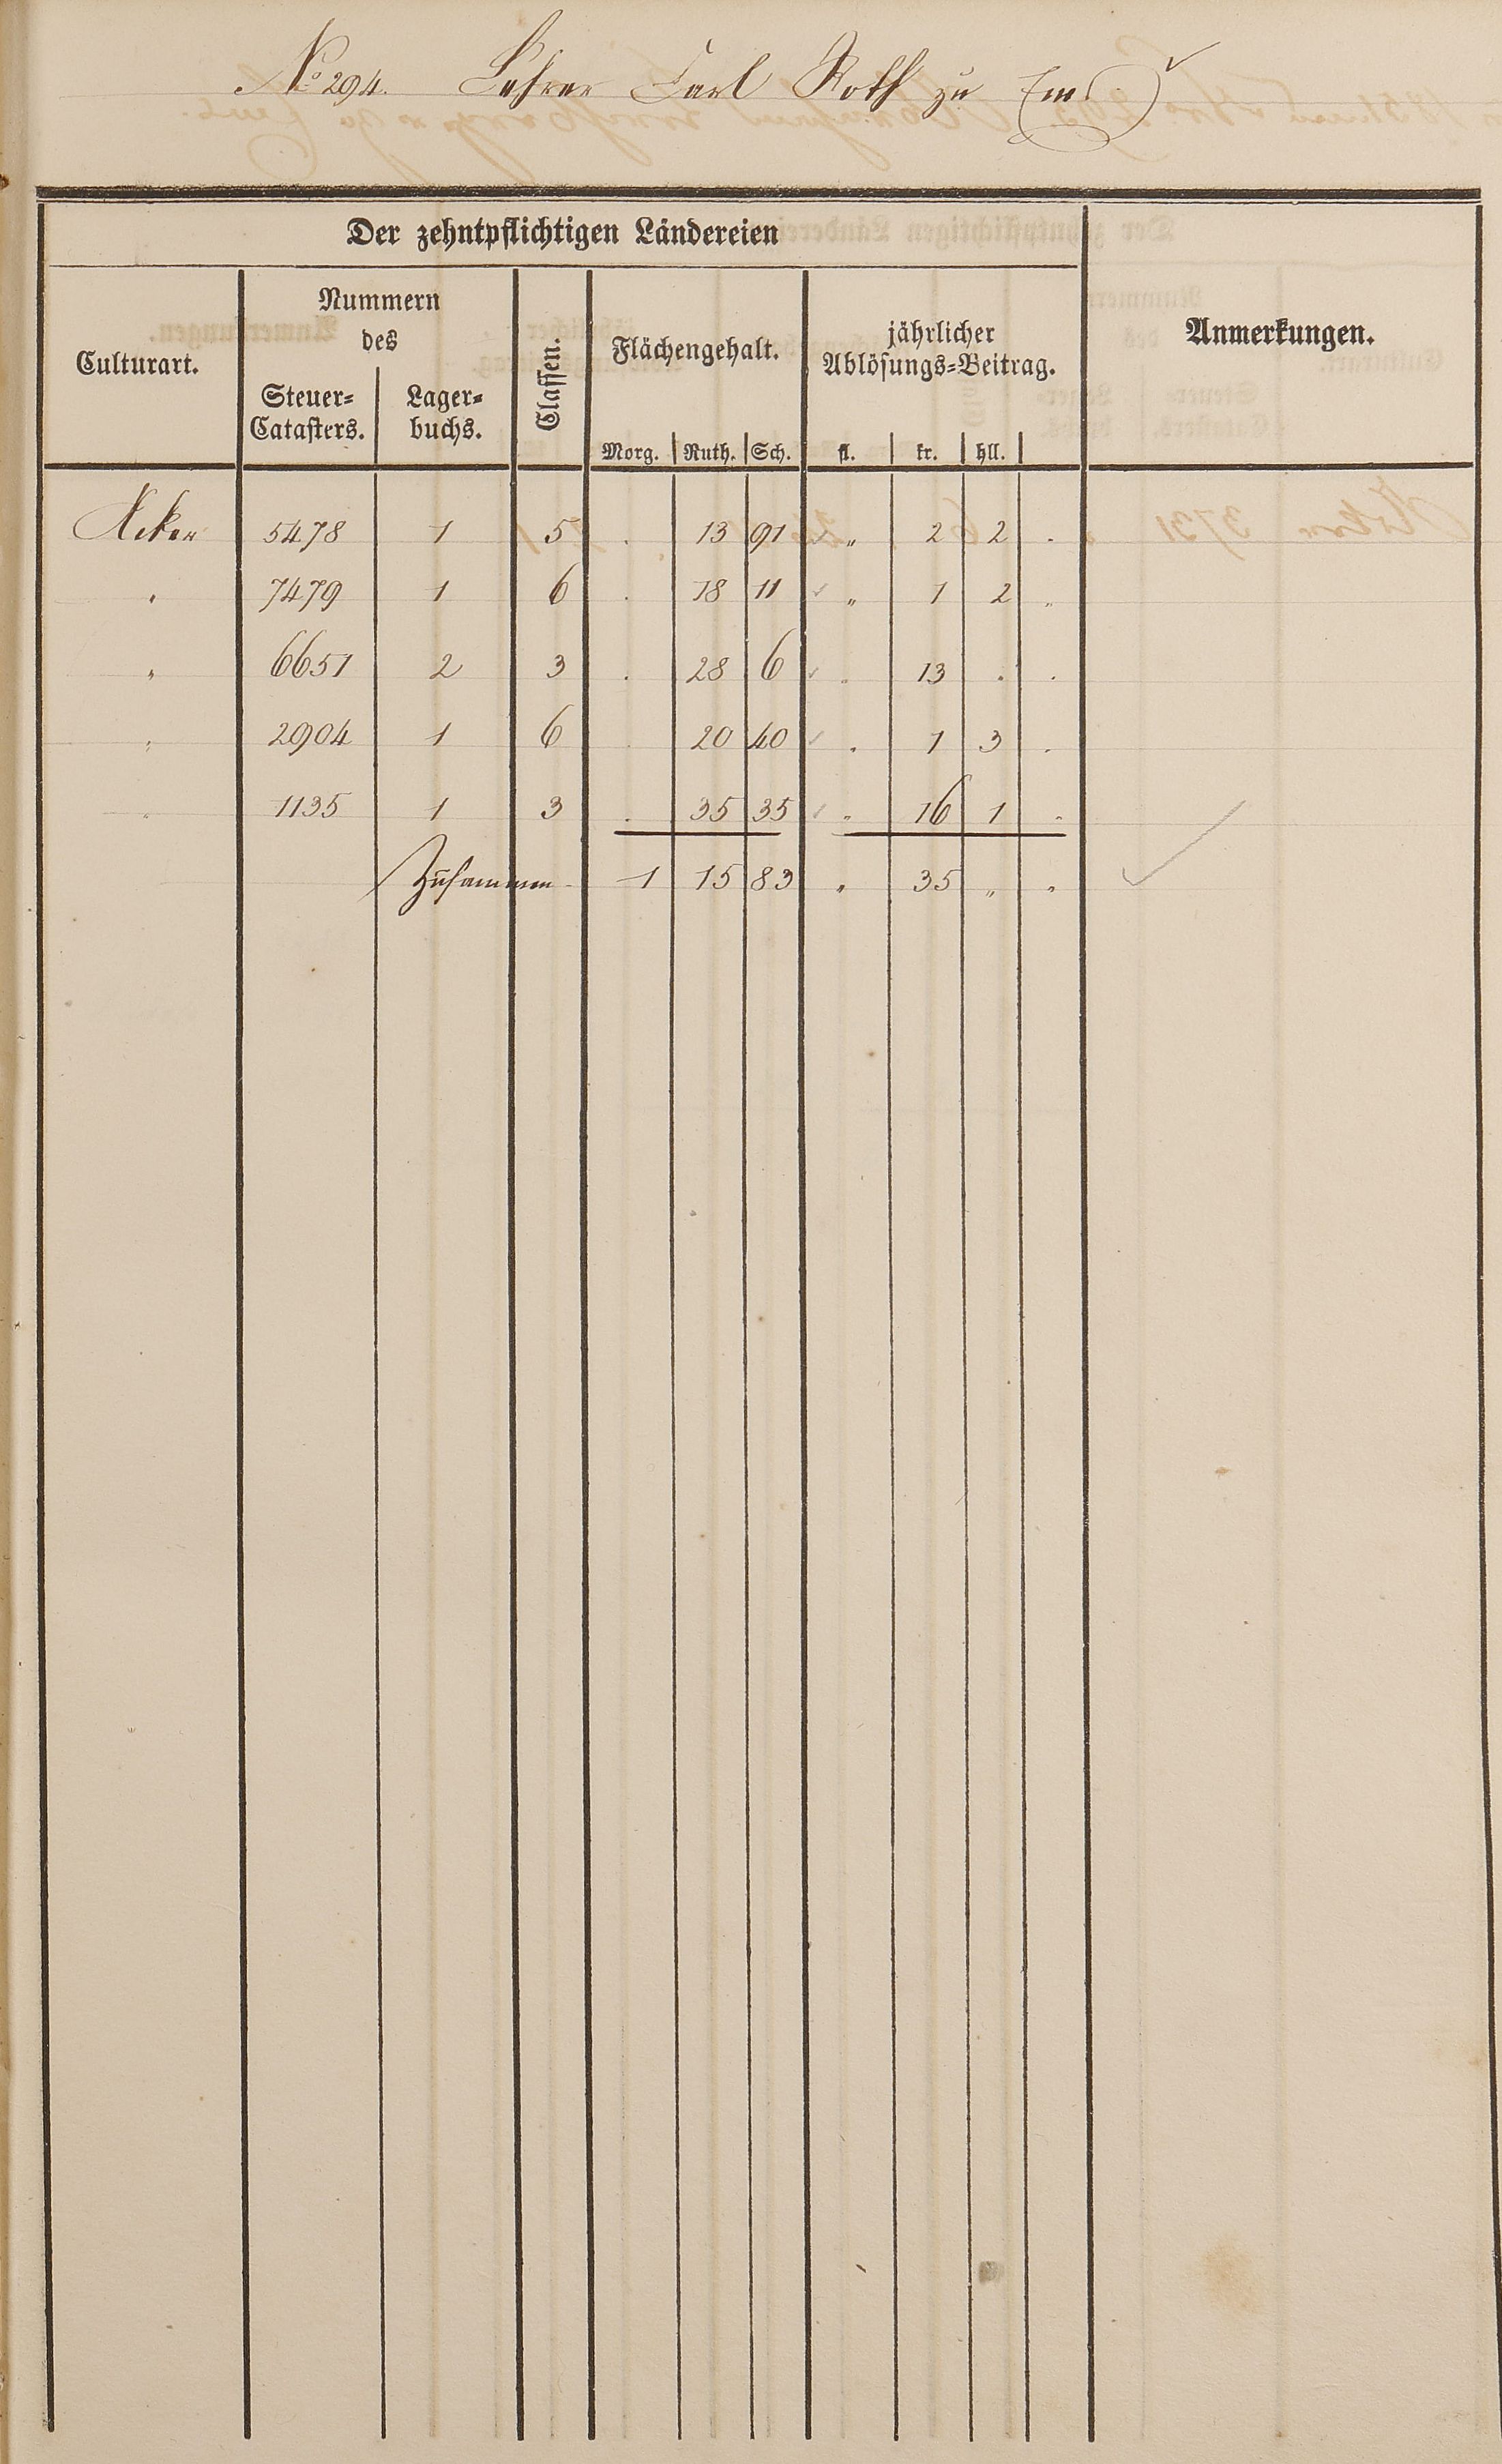 No 294. Lehrer Carl Roth zu Ems
Der zehntpflichtigen Ländereien
Culturart.
Nummern
des
Steuer=
Catasters.
Lager=
buchs.
Classen.
Flächengehalt.
Morg. Ruth. Sch.
jährlicher
Ablösungs=Beitrag.
fl. kr. hll.
Anmerkungen.
Acker 5478 1 5 . 13 91 „ 2 2 .
„ 7479 1 6 . 18 11 „ 1 2 „
„ 6651 2 3 . 28 6 „ 13 . .
„ 2904 1 6 . 20 40 . 1 3 .
„ 1135 1 3 . 35 35 „ 16 1 „
Zusammen 1 15 83 „ 35 „ „